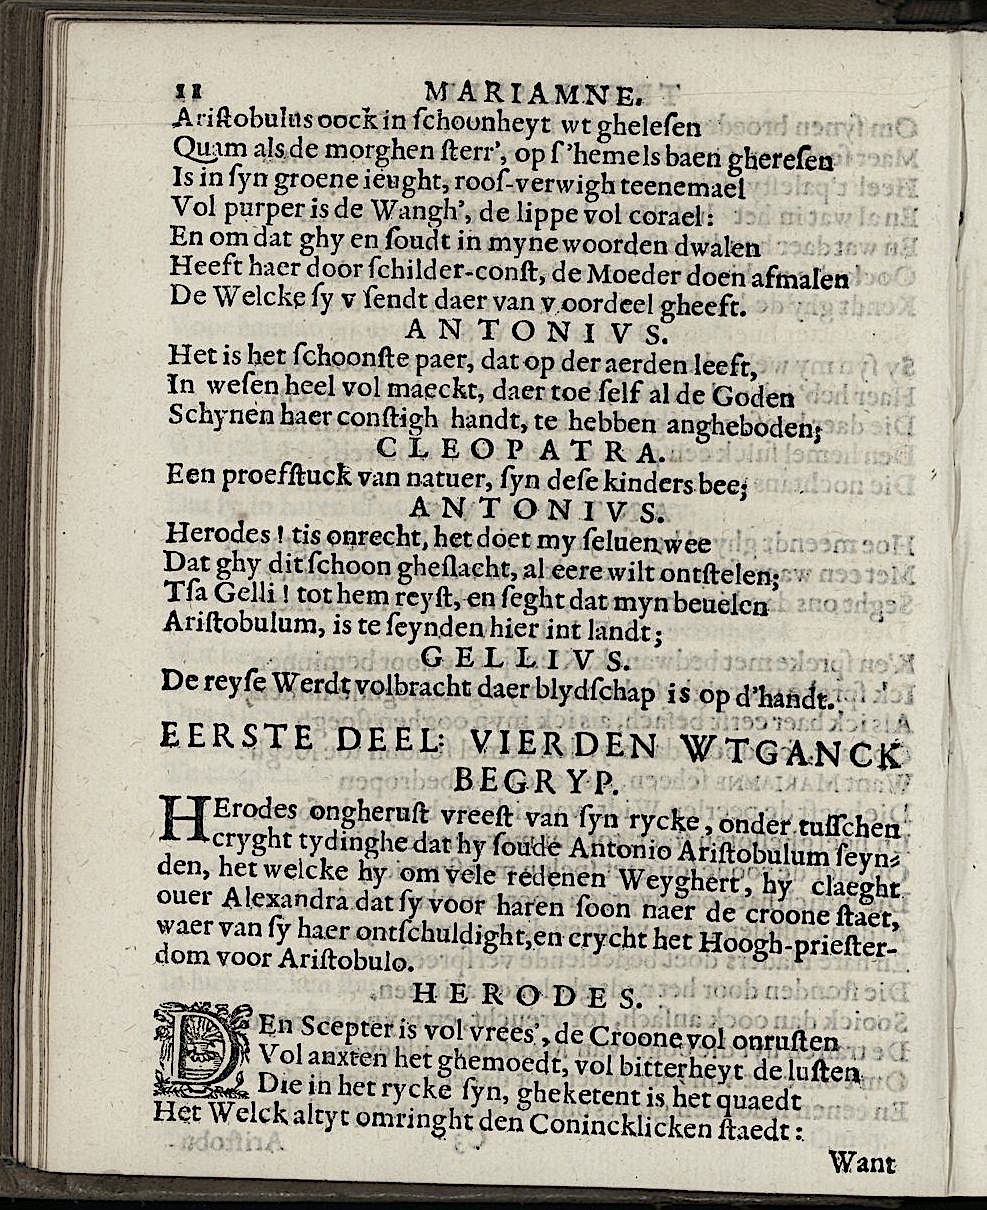 11 MARIAMNE.
Ariſtobulus oock in ſchoonheyt wt gheleſen
Quam als de morghen ſterr', op ſ'hemels baen ghereſen
Is in ſyn groene ieught, rooſ-verwigh teenemael
Vol purper is de Wangh', de lippe vol corael:
En om dat ghy en ſoudt in myne woorden dwalen
Heeft haer door ſchilder-conſt, de Moeder doen afmalen
De Welcke ſy v ſendt daer van v oordeel gheeft.
ANTONIVS.
Het is het ſchoonſte paer, dat op der aerden leeft,
In weſen heel vol maeckt, daer toe ſelf al de Goden
Schynen haer conſtigh handt, te hebben angheboden;
CLEOPATRA.
Een proefſtuck van natuer, ſyn deſe kinders bee;
ANTONIVS.
Herodes! tis onrecht, het doet my ſeluen wee
Dat ghy dit ſchoon gheſlacht, al eere wilt ontſtelen;
Tſa Gelli! tot hem reyſt, en ſeght dat myn beuelen
Ariſtobulum, is te ſeynden hier int landt;
GELLIVS.
De reyſe Werdt volbracht daer blydſchap is op d'handt.
EERSTE DEEL: VIERDEN WTGANCK
BEGRYP.
HErodes ongheruſt vreeſt van ſyn rycke, onder tuſſchen
cryght tydinghe dat hy ſoude Antonio Ariſtobulum ſeyn-
den, het welcke hy om vele redenen Weyghert, hy claeght
ouer Alexandra dat ſy voor haren ſoon naer de croone ſtaet,
waer van ſy haer ontſchuldight, en crycht het Hoogh-prieſter-
dom voor Ariſtobulo.
HERODES.
DEn Scepter is vol vrees', de Croone vol onruſten
Vol anxten het ghemoedt, vol bitterheyt de luſten
Die in het rycke ſyn, gheketent is het quaedt
Het Welck altyt omringht den Conincklicken ſtaedt:
Want